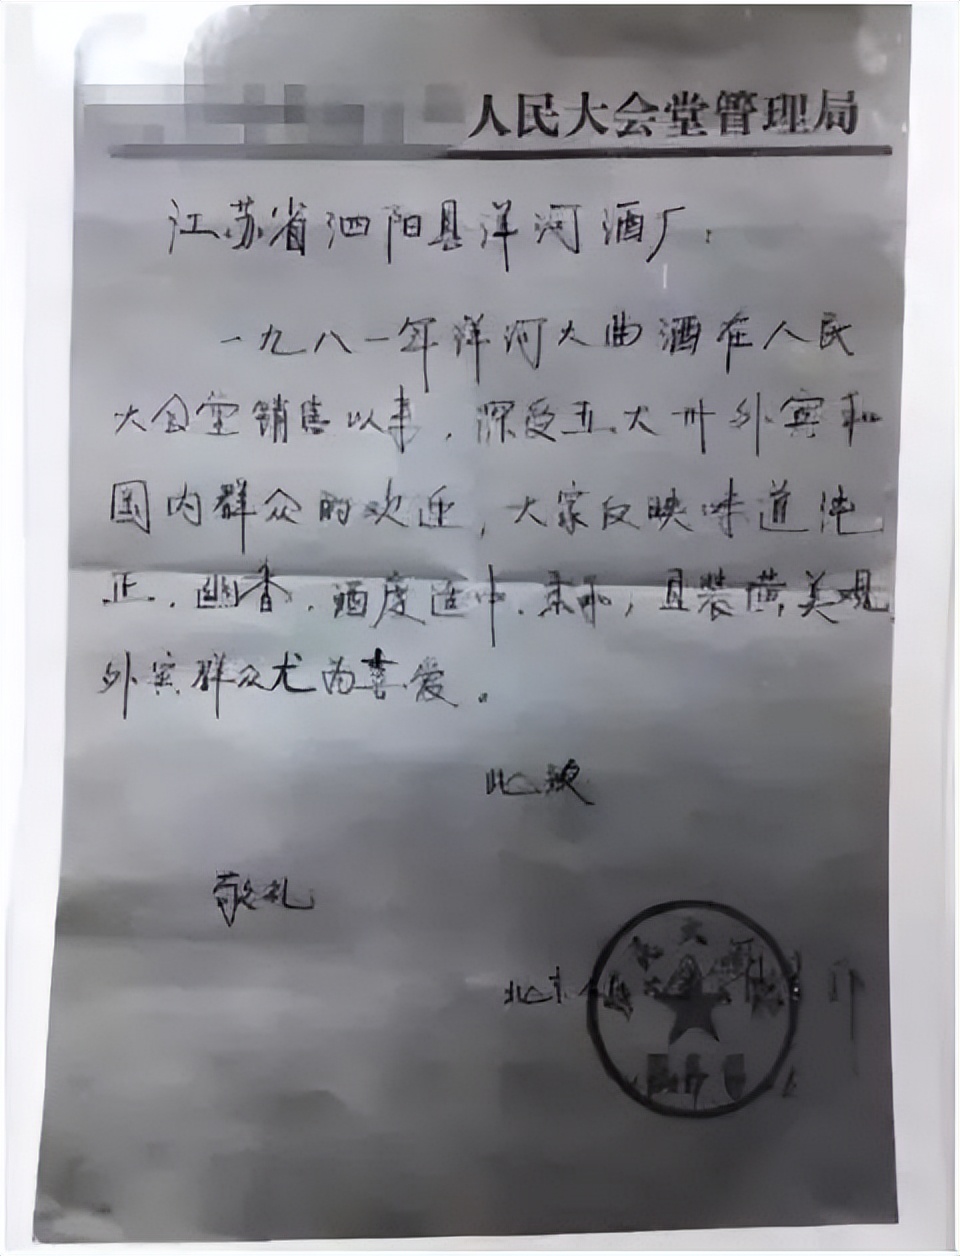 人民大会堂管理局
江苏省泗阳县洋河酒厂：
一九八一年洋河大曲酒在人民
大会堂销售以来，深受五大州外宾和
国内群众的欢迎，大家反映味道纯
正、幽香、酒度适中、柔和，且装潢美观
外宾群众尤为喜爱。
此致
敬礼
北京